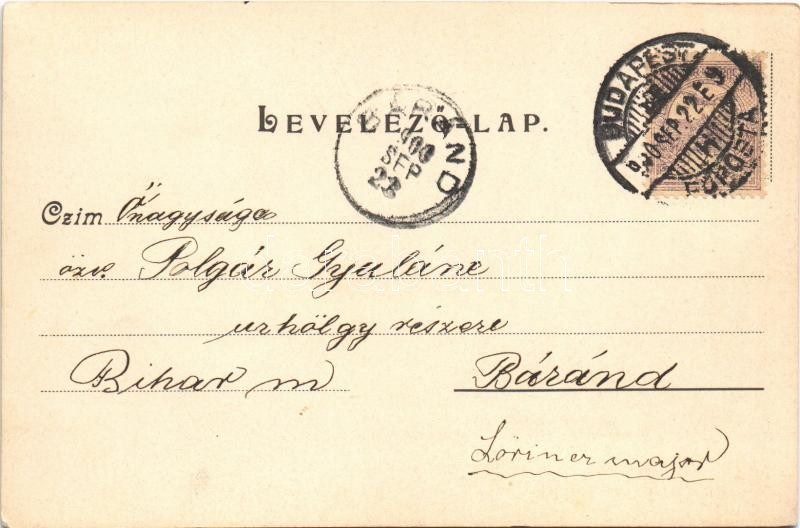 LEVELEZŐ-LAP.
BÁRÁND
900
SEP
23
BUDAPEST
900 SEP. 22 E 9
Czim Őnagysága
özv. Polgár Gyuláné
urhölgy részére
Bihar m Báránd
Lőrincz major